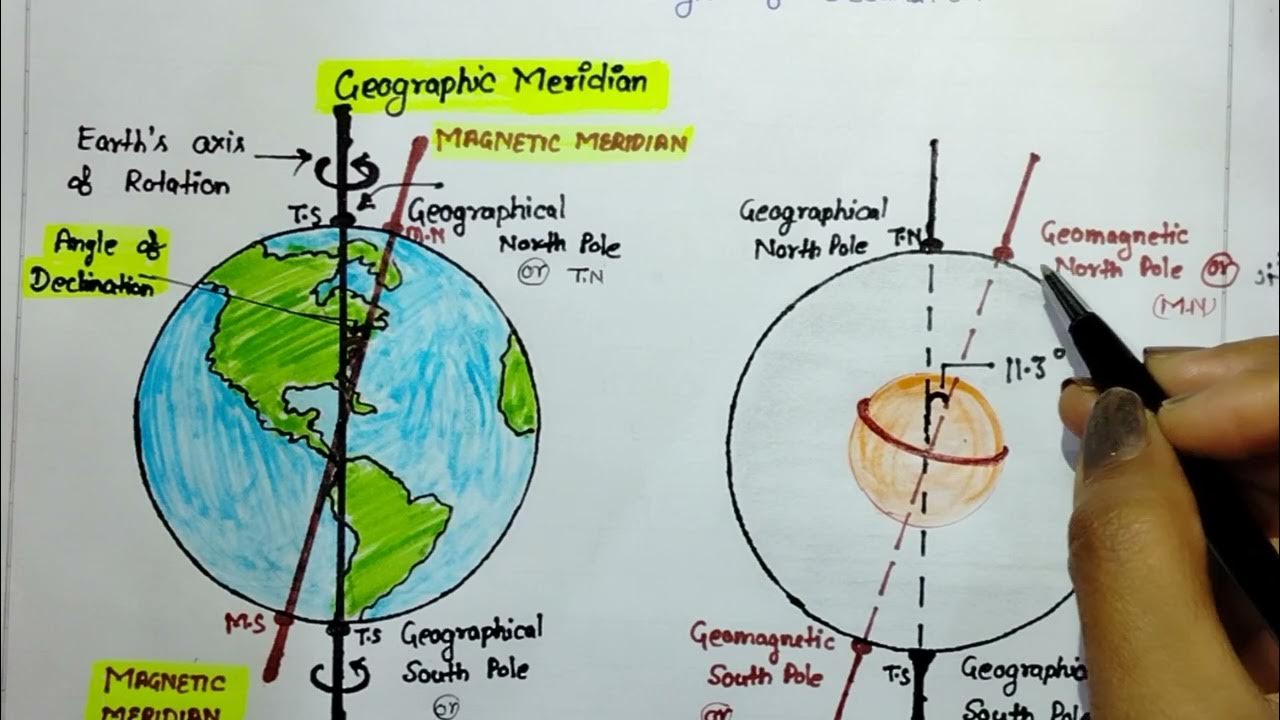 Geographic Meridian
MAGNETIC MERIDIAN
Earth's axis
of Rotation
T.S
Geographical
North Pole
or T.N
M.N
Angle of
Declination
M.S
T.S
Geographical
South Pole
or
MAGNETIC
MERIDIAN
Geographical
North Pole
T.N
Geomagnetic
North Pole or
(M.N)
11.3°
Geomagnetic
South Pole
or
T.S